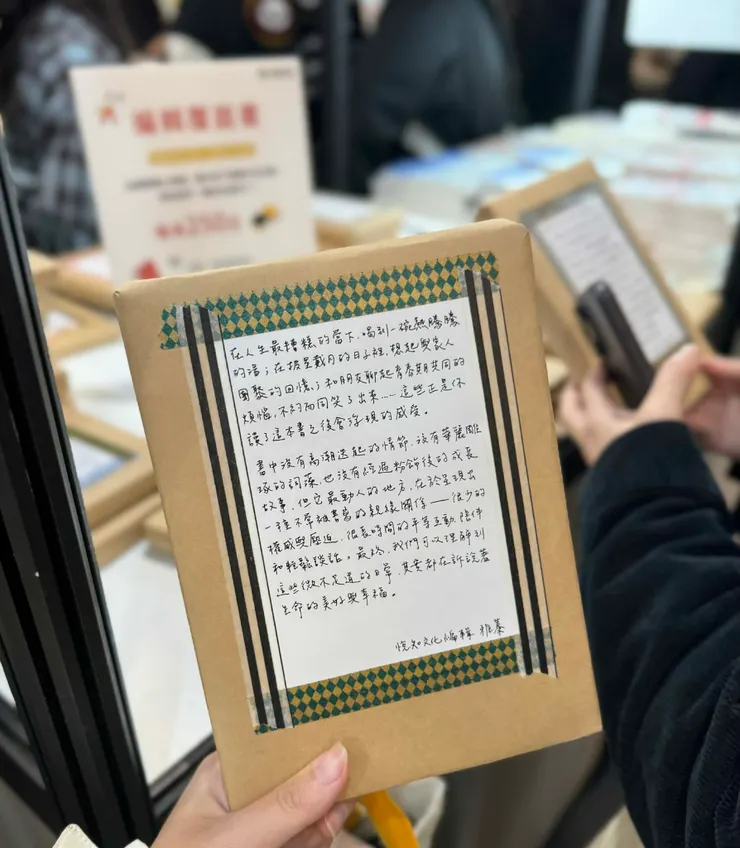 編輯覆面書
在人生最糟糕的當下，喝到一碗熱騰騰
的湯；在披星戴月的日子裡，想起與家人
團聚的回憶；和朋友聊起青春期共同的
煩惱，不約而同笑了出來……這些正是你
讀了這本書之後會浮現的感受。
書中沒有高潮迭起的情節，沒有華麗雕
琢的詞藻，也沒有經過粉飾後的成長
故事，但它最動人的地方，在於呈現出
一種不常被書寫的親緣關係——很少的
權威與壓迫，很長時間的平等互動、陪伴
和輕鬆談話。最終，我們可以理解到
這些微不足道的日常，其實都在訴說著
生命的美好與幸福。
悅知文化編輯 雅蓁